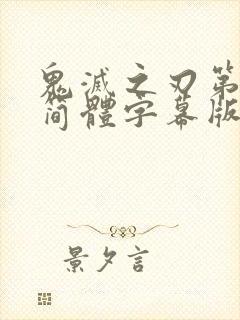 鬼滅之刃第
简體字幕版
景夕言